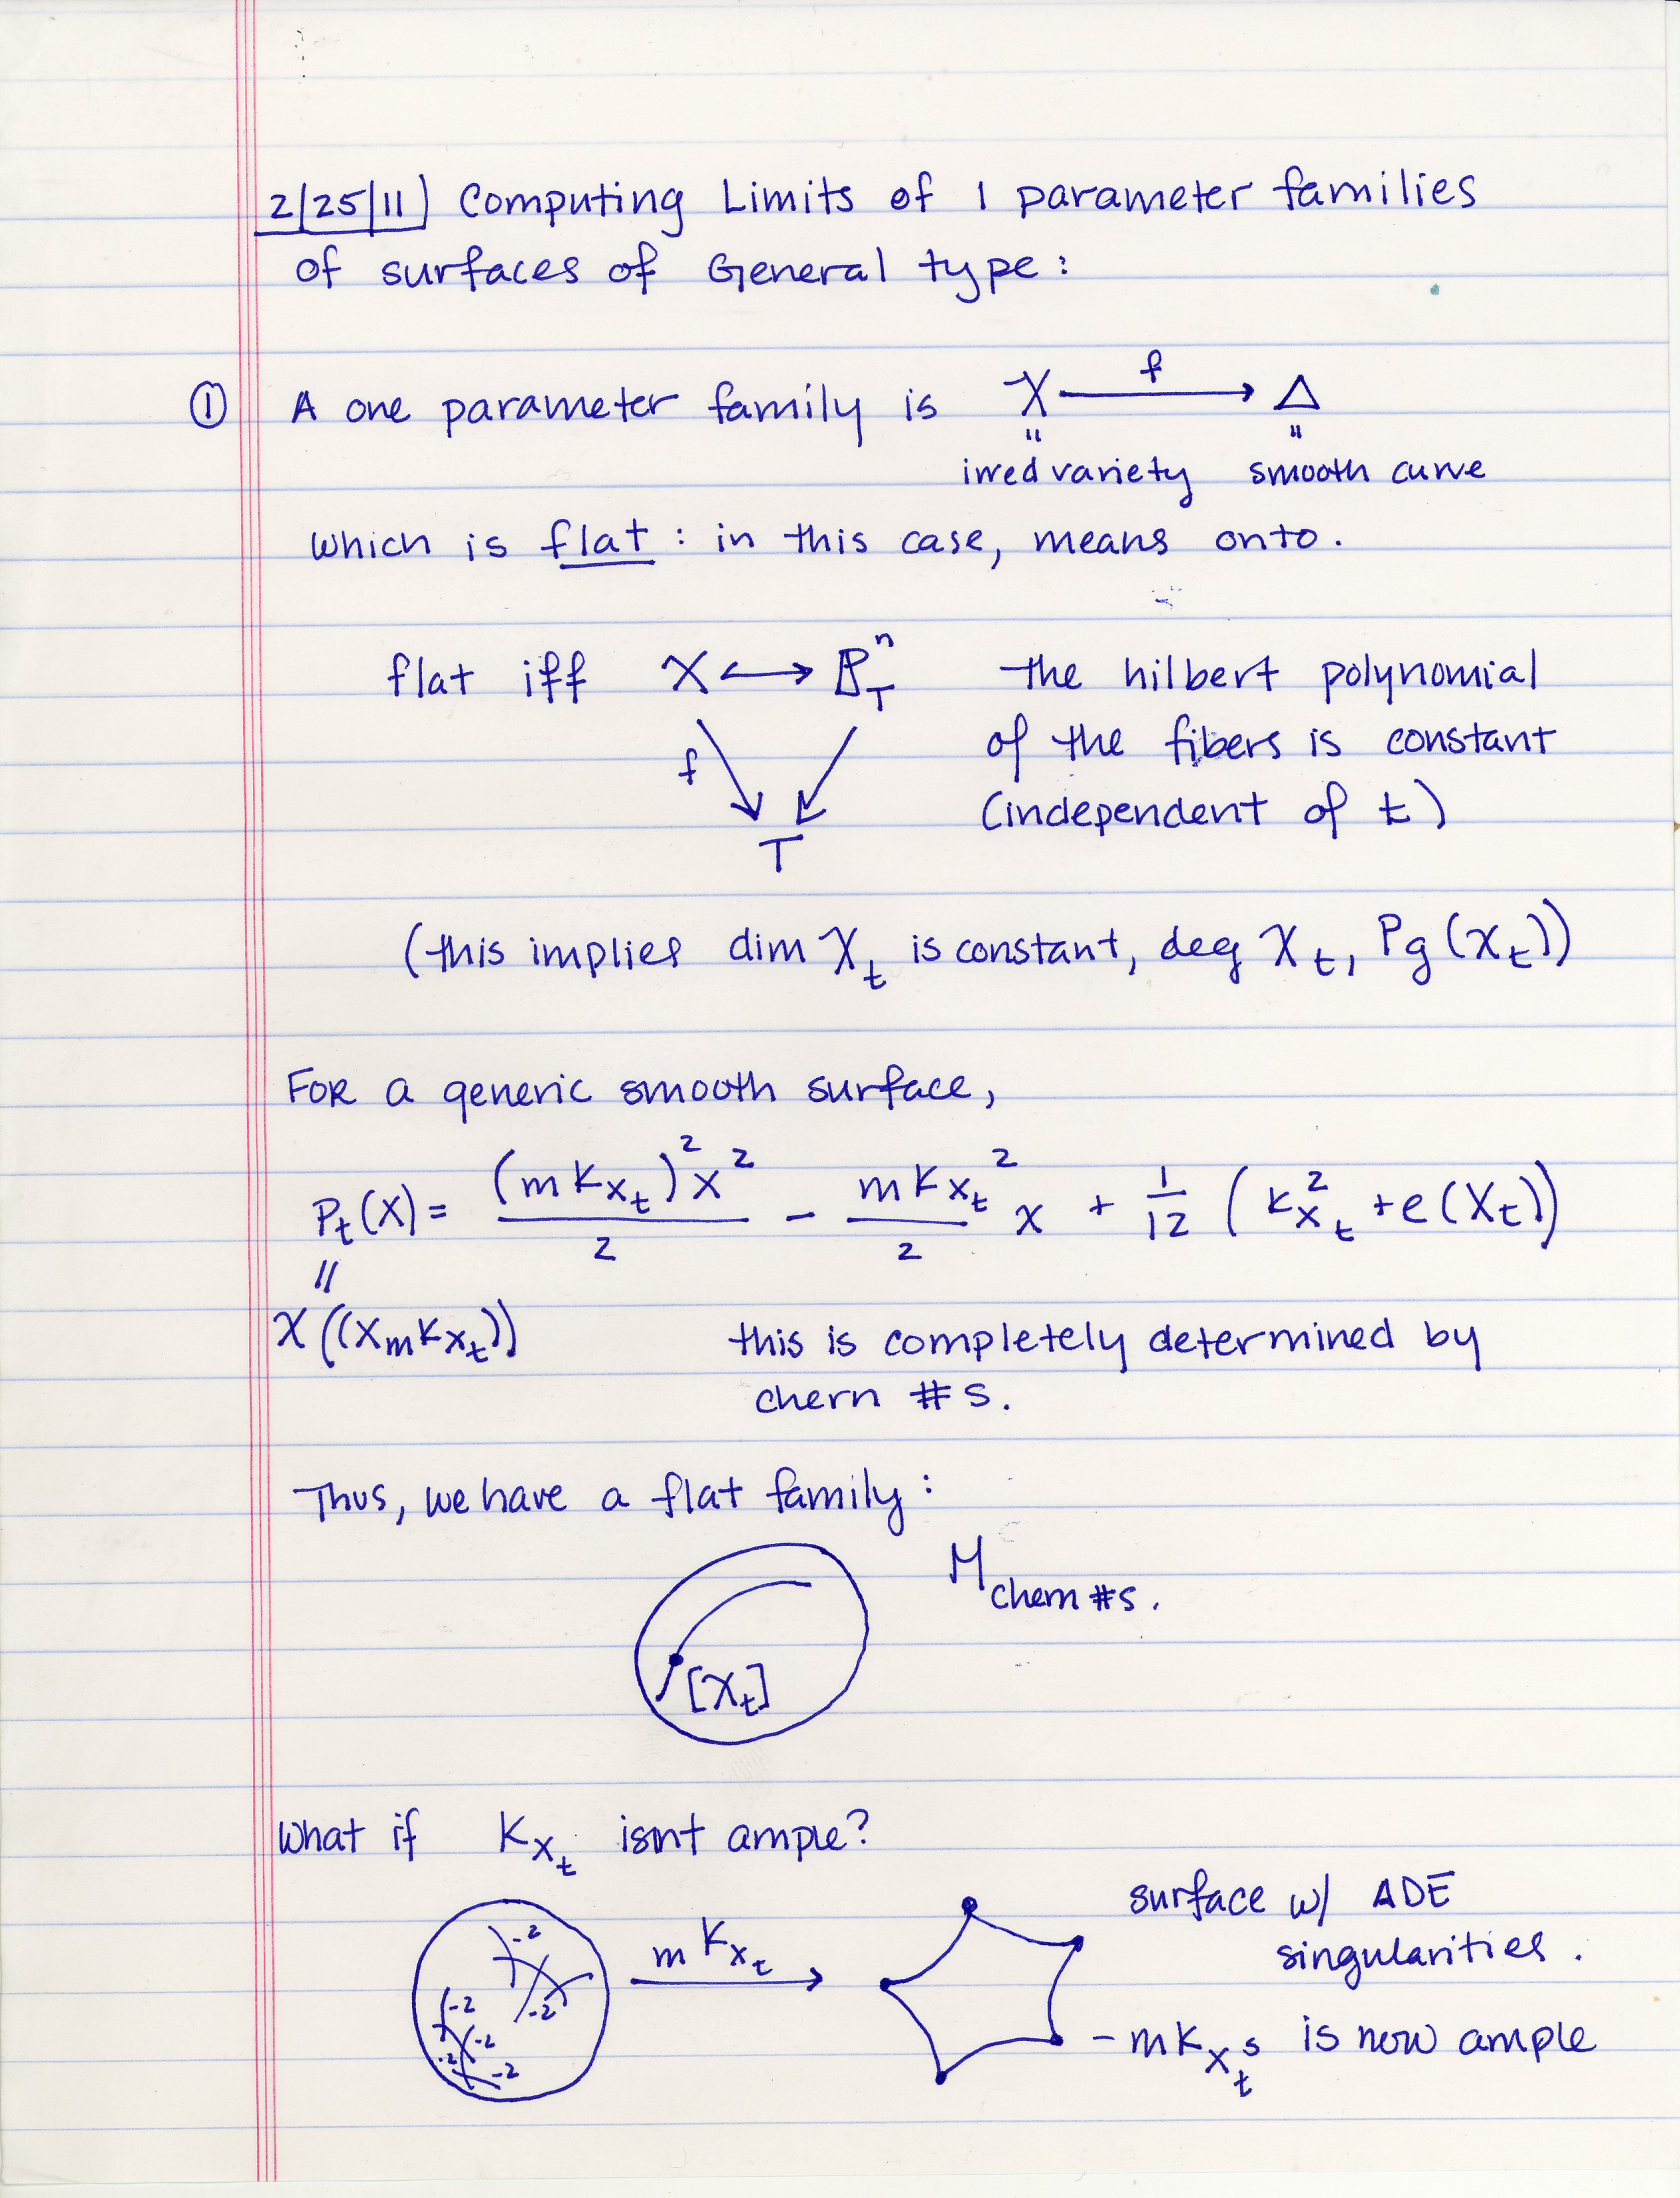 2/25/11) Computing Limits of 1 parameter families
of surfaces of General type:
① A one parameter family is X —f→ Δ
" "
irred variety smooth curve
which is flat : in this case, means onto.
flat iff X ↔ P^n_T the hilbert polynomial
of the fibers is constant
f
(independent of t)
T
(this implies dim X_t is constant, deg X_t, Pg(X_t))
For a generic smooth surface,
P_t(X) = (mK_{X_t})^2 x^2 / 2 - mK_{X_t}^2 / 2 x + 1/12 (K_{X_t}^2 + e(X_t))
"
χ((XmK_{X_t}))
this is completely determined by
chern #s.
Thus, we have a flat family:
M_{chern #s.}
[X_t]
What if K_{X_t} isnt ample?
surface w/ ADE
singularities.
-2
mK_{X_t}
-2
-2
-2
-2
-2
- mK_{X_t^s} is now ample